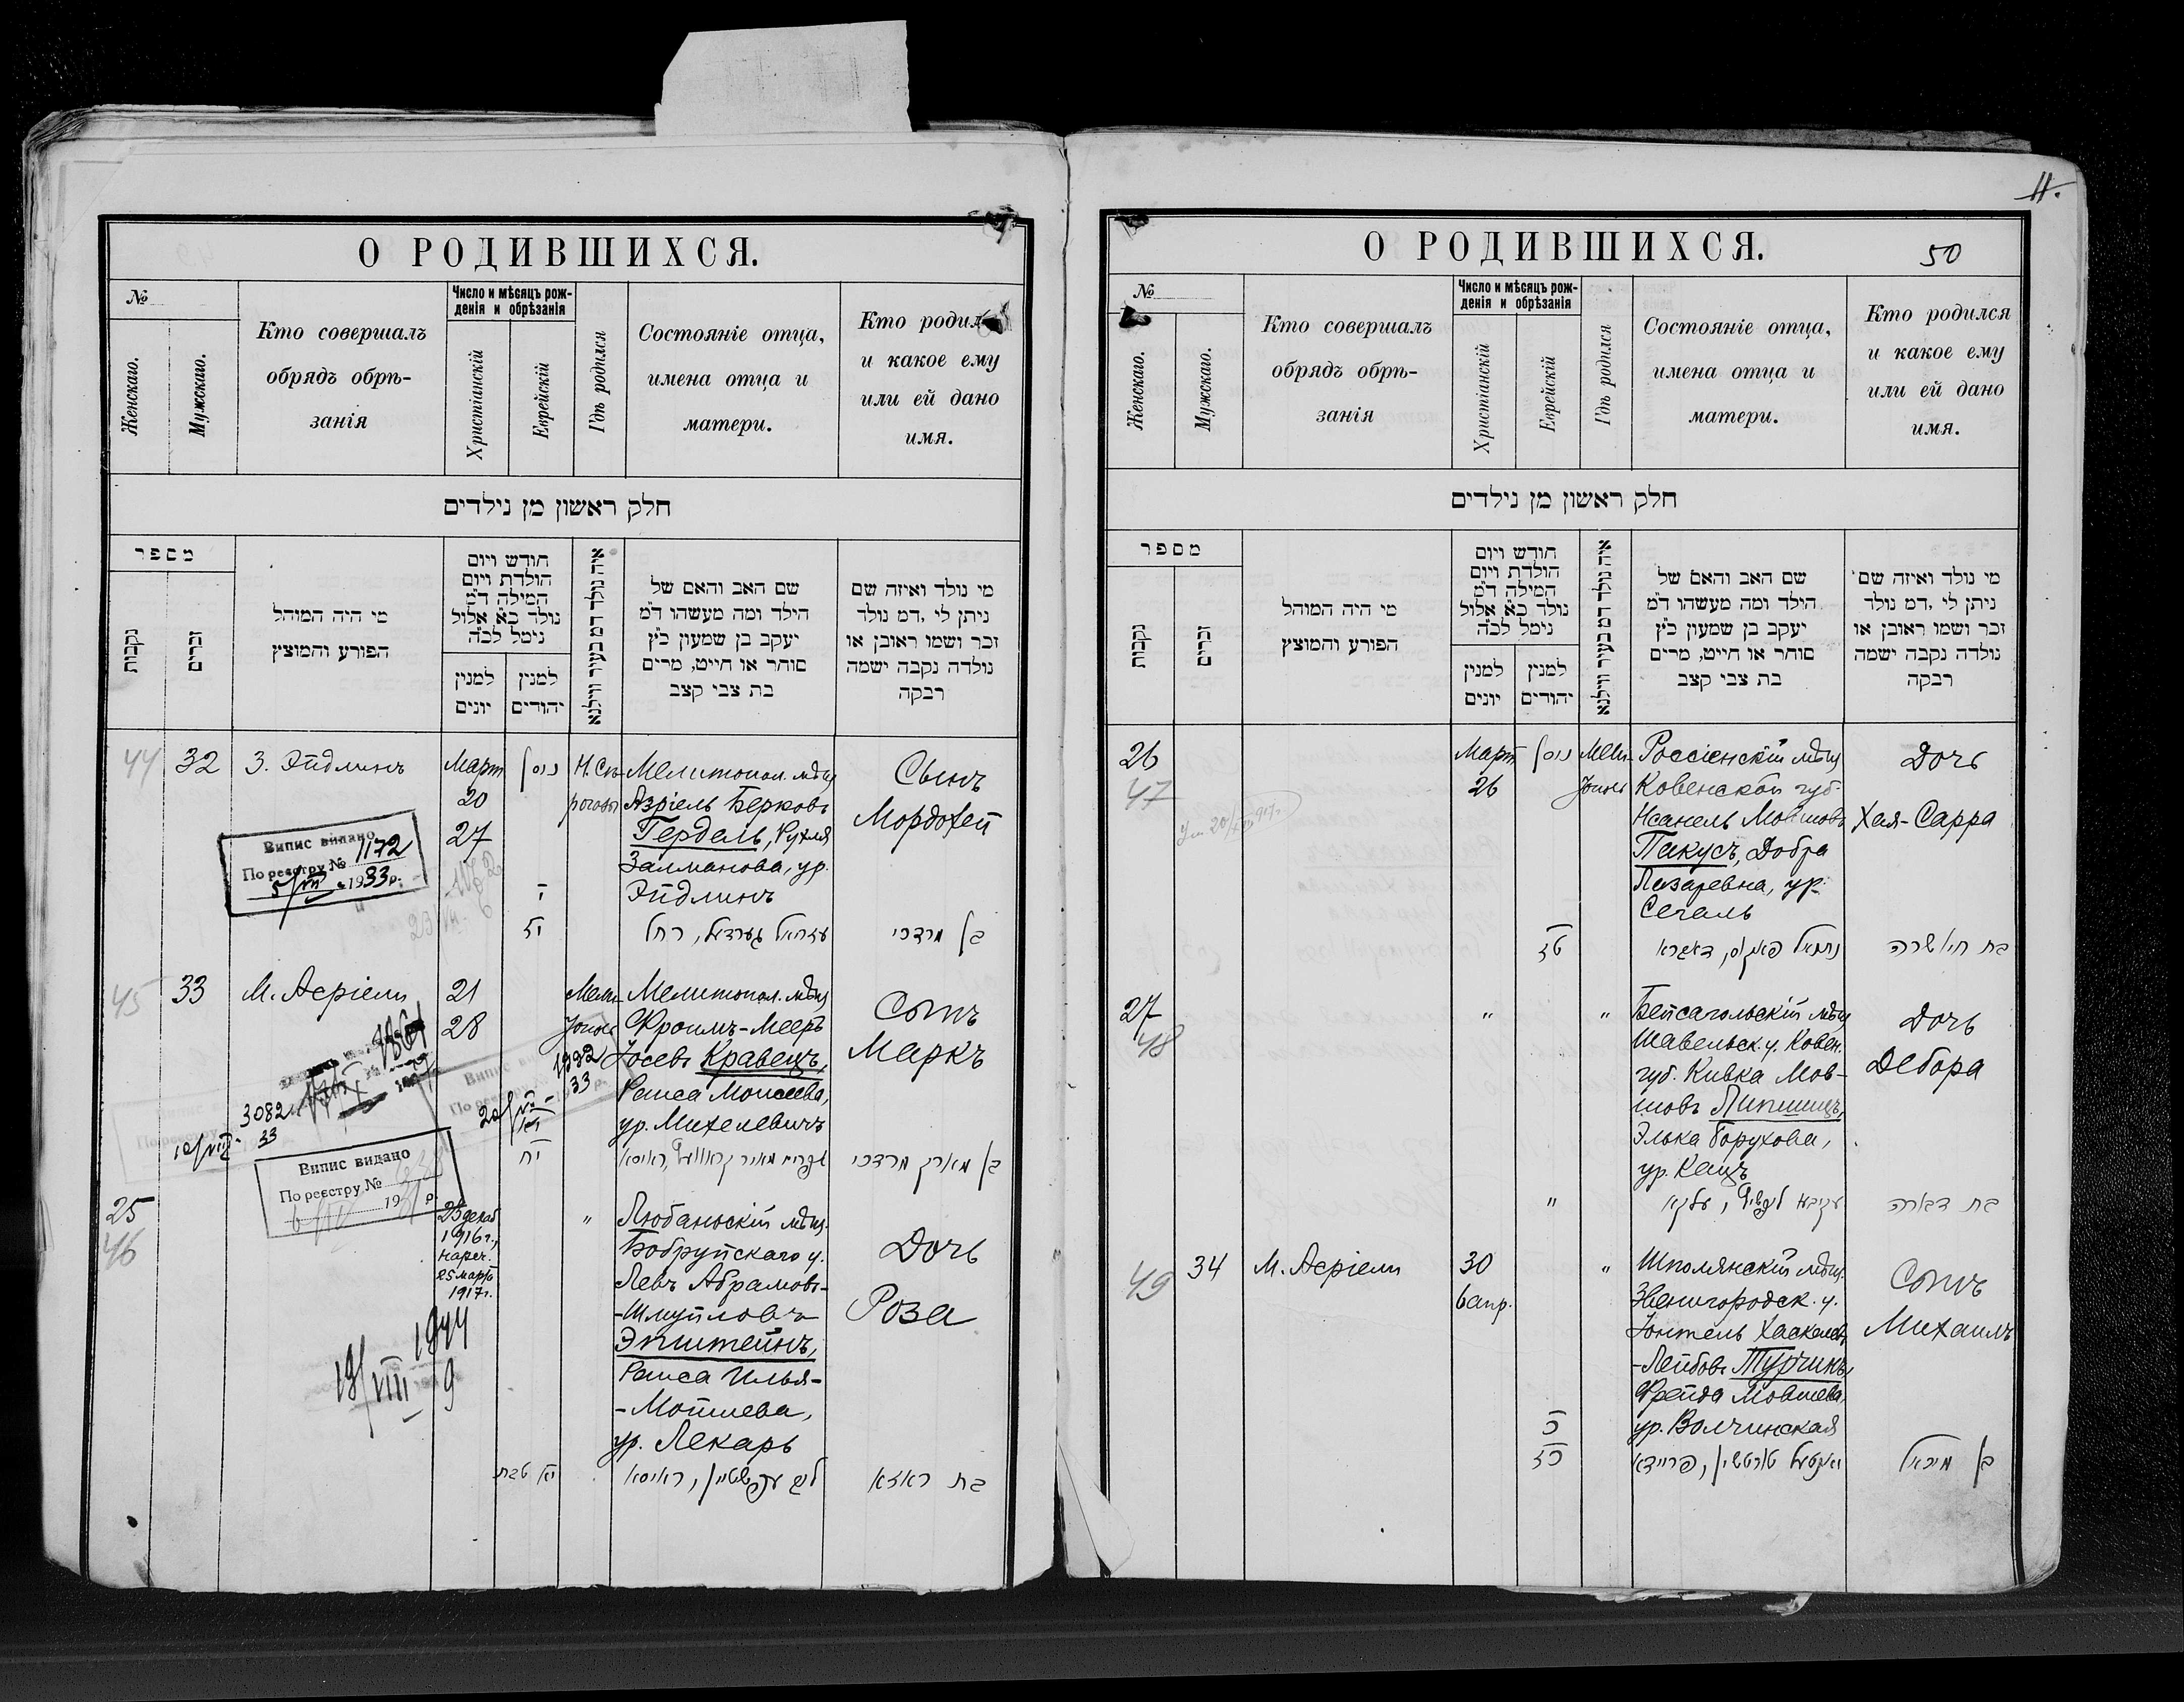 О РОДИВШИХСЯ.
№
Женскаго.
Мужскаго.
Кто совершалъ
обрядъ обрѣ-
занія
Число и мѣсяцъ рож-
денія и обрѣзанія
Христіанскій
Еврейскій
Гдѣ родился
Состояніе отца,
имена отца и
матери.
Кто родил
и какое ему
или ей дано
имя.
חלק ראשון מן נילדים
מספר
נקבות
זכרים
מי היה המוהל
הפורע והמוצץ
חודש ויום
הולדת ויום
המילה ד״מ
נולד כ״א אלול
נימל לכ״ה
למנין
יונים
למנין
יהודים
איה נולד דמ בעיר ווילנא
שם האב והאם של
הילד ומה מעשהו ד״מ
יעקב בן שמעון כ״ץ
סוחר או חייט, מרים
בת צבי קצב
מי נולד ואיזה שם
ניתן לי, דמ נולד
זכר ושמו ראובן או
נולדה נקבה ישמה
רבקה
44 32 З. Эйдлинъ Март 20 27 ניסן Н. Сѣ-
рогозы
Мелитопол. мѣщ
Азріель Берковъ
Гердель, Рухля
Залманова, ур.
Эйдлинъ
Сынъ
Мордохей
Випис видано
По реєстру № 1172
5/VII 1933 р.
י
יז
עזריאל גערדעל, רחל
בן מרדכי
45 33 М. Асріели 21 28 Мели-
тополь
Мелитопол. мѣщ
Фроимъ-Мееръ
Іосевъ Кравецъ,
Раиса Моисеева,
ур. Михелевичъ
Сынъ
Маркъ
3082
33
יח
אפרים מאיר קראוועץ, ראיסא
בן מארק מרדכי
Випис видано
По реєстру №
19 р.
25
46
25 декаб
1916 г.,
нареч.
25 март
1917 г.
"
Любаньскій мѣщ.
Бобруйскаго у.
Левъ Абрамовъ-
-Шмуйловъ
Эпштейнъ,
Раиса Илья-
-Мотилева,
ур. Лекарь
Дочь
Роза
1944
19/VIII 9
יא טבת
ליב עפשטיין, ראיסא
בת ראזא
11.
О РОДИВШИХСЯ. 50
№
Женскаго.
Мужскаго.
Кто совершалъ
обрядъ обрѣ-
занія
Число и мѣсяцъ рож-
денія и обрѣзанія
Христіанскій
Еврейскій
Гдѣ родился
Состояніе отца,
имена отца и
матери.
Кто родился
и какое ему
или ей дано
имя.
חלק ראשון מן נילדים
מספר
נקבות
זכרים
מי היה המוהל
הפורע והמוצץ
חודש ויום
הולדת ויום
המילה ד״מ
נולד כ״א אלול
נימל לכ״ה
למנין
יונים
למנין
יהודים
איה נולד דמ בעיר ווילנא
שם האב והאם של
הילד ומה מעשהו ד״מ
יעקב בן שמעון כ״ץ
סוחר או חייט, מרים
בת צבי קצב
מי נולד ואיזה שם
ניתן לי, דמ נולד
זכר ושמו ראובן או
נולדה נקבה ישמה
רבקה
26
47
Март
26
ניסן
Мели-
тополь
Россіенскій мѣщ
Ковенской губ
Нсанель Мовшовъ
Пакусъ, Добра
Лазаревна, ур.
Сегаль
Дочь
Хая-Сарра
טז
נתנאל פאקוס, דאברא
בת חיה שרה
27
48
"
"
Бейсагольскій мѣщ
Шавельск. у. Ковен.
губ. Кивка Мов-
шовъ Липшицъ,
Элька Борухова,
ур. Кацъ
Дочь
Дебора
"
עקיבא ליפשיץ, עלקא
בת דבורה
49 34 М. Асріели 30
6 апр.
"
Шполянскій мѣщ.
Звенигородск. у.
Іонтель Хаскелевъ
-Лейбовъ Турчинъ,
Фрейда Мовшева,
ур. Волчинская
Сынъ
Михаилъ
כ
כז
יאנטעל טורטשין, פריידא
בן מיכאל